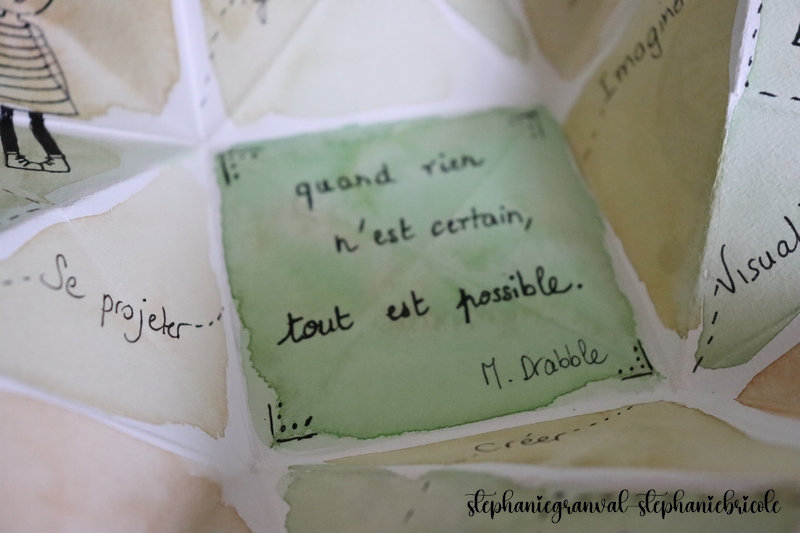 quand rien
n'est certain,
tout est possible.
M. Drabble
Se
projeter
créer
stephaniegranval-stephaniebricole